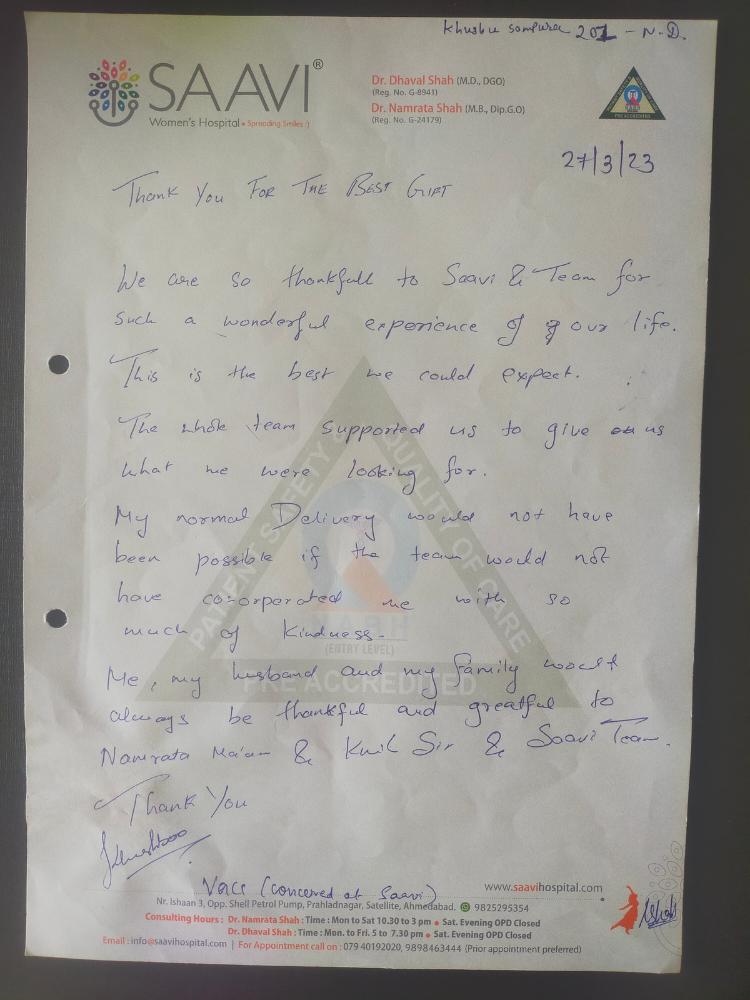 Khusbu sompura 201 - N.D.
SAAVI®
Women's Hospital • Spreading Smiles :)
Dr. Dhaval Shah (M.D., DGO)
(Reg. No. G-8941)
Dr. Namrata Shah (M.B., Dip.G.O)
(Reg. No. G-24179)
PRE ACCREDITED
27/3/23
Thank You For The Best Gift
We are so thankfull to Saavi & Team for
such a wonderful experience of our life.
This is the best we could expect.
The whole team supported us to give us
what we were looking for.
My normal Delivery would not have
been possible if the team would not
have co-orperated me with so
much of kindness-
Me, my husband and my family would
always be thankful and greatful to
Namrata Ma'am & Sir & Saavi Team.
PATIENT SAFETY & QUALITY OF CARE
(ENTRY LEVEL)
PRE ACCREDITED
Thank You
Khushboo
(concerved at Saavi)
www.saavihospital.com
Nr. Ishaan 3, Opp. Shell Petrol Pump, Prahladnagar, Satellite, Ahmedabad. 9825295354
Consulting Hours : Dr. Namrata Shah : Time : Mon to Sat 10.30 to 3 pm • Sat. Evening OPD Closed
Dr. Dhaval Shah : Time : Mon. to Fri. 5 to 7.30 pm • Sat. Evening OPD Closed
Email : info@saavihospital.com | For Appointment call on : 079 40192020, 9898463444 (Prior appointment preferred)